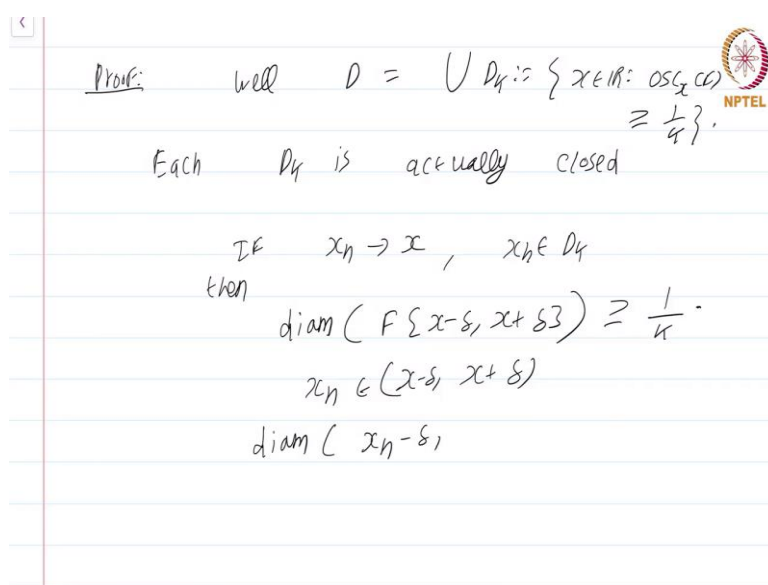 Proof: Well D = ⋃ D_k := { x ∈ ℝ : osc_x(f)
NPTEL
≥ 1/k }.
Each D_k is actually closed
If x_n → x , x_n ∈ D_k
then
diam ( F { x-δ, x+δ } ) ≥ 1/k .
x_n ∈ (x-δ, x+δ)
diam ( x_n - δ,